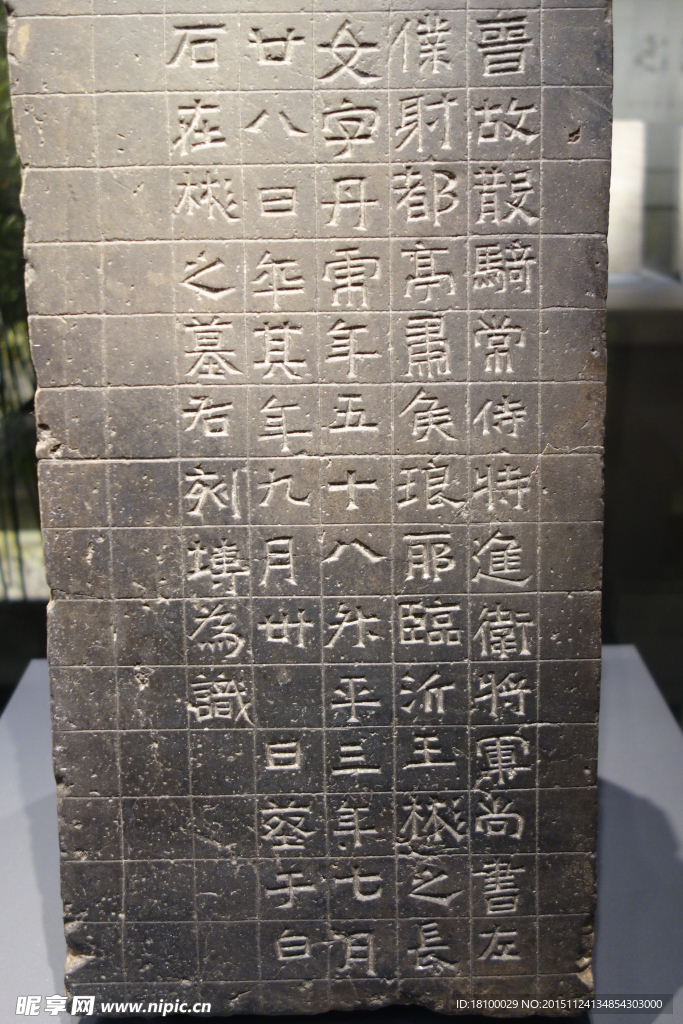 晉故散騎常侍特進衛將軍尚書左
僕射都亭肅侯琅耶臨沂王彬之長
女字丹虎年五十八升平三年七月
廿八日卒其年九月卅日塟于白
石在彬之墓右刻塼為識
昵享网 www.nipic.cn
ID:18100029 NO:20151124134854303000